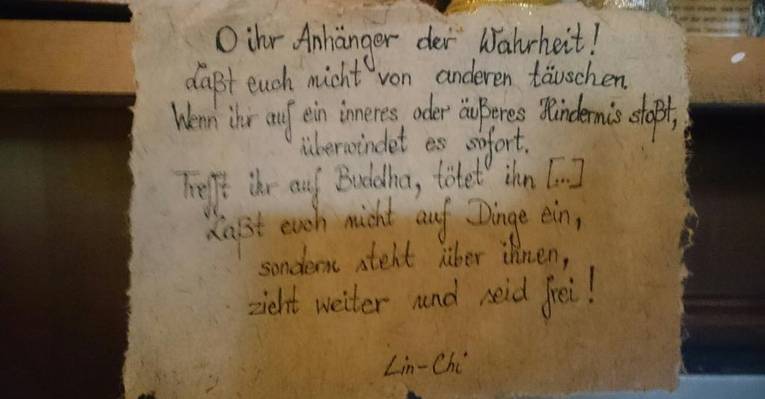 O ihr Anhänger der Wahrheit!
Laßt euch nicht von anderen täuschen.
Wenn ihr auf ein inneres oder äußeres Hindernis stoßt,
überwindet es sofort.
Trefft ihr auf Buddha, tötet ihn [...]
Laßt euch nicht auf Dinge ein,
sondern steht über ihnen,
zieht weiter und seid frei!
Lin-Chi